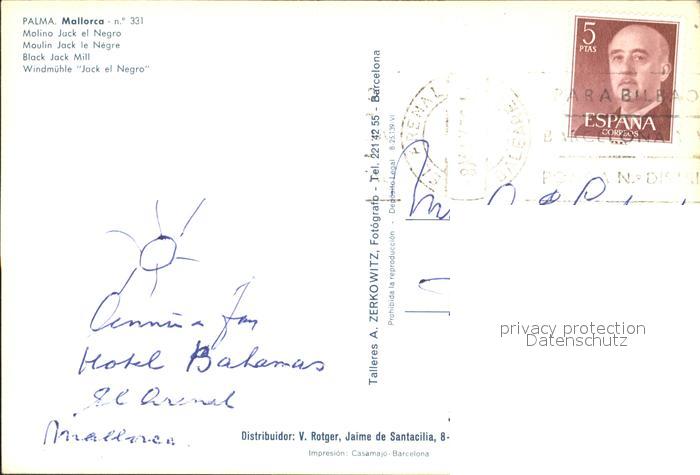 PALMA. Mallorca - n.º 331
Molino Jack el Negro
Moulin Jack le Négre
Black Jack Mill
Windmühle "Jack el Negro"
Hotel Bahamas
El Arenal
Mallorca
Talleres A. ZERKOWITZ, Fotógrafo - Tel. 221 42 55 - Barcelona
Prohibida la reproducción - Depósito Legal B 25.139-VI
Distribuidor: V. Rotger, Jaime de Santacilia, 8-
Impresión: Casamajo-Barcelona
5
PTAS
ESPAÑA
CORREOS
ARENAL
BALEARES
PARA BILBAO
BARCELONA
privacy protection
Datenschutz